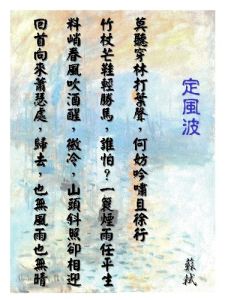 定風波
莫聽穿林打葉聲，何妨吟嘯且徐行
竹杖芒鞋輕勝馬，誰怕？一簑煙雨任平生
料峭春風吹酒醒，微冷，山頭斜照卻相迎
回首向來蕭瑟處，歸去，也無風雨也無晴
蘇軾